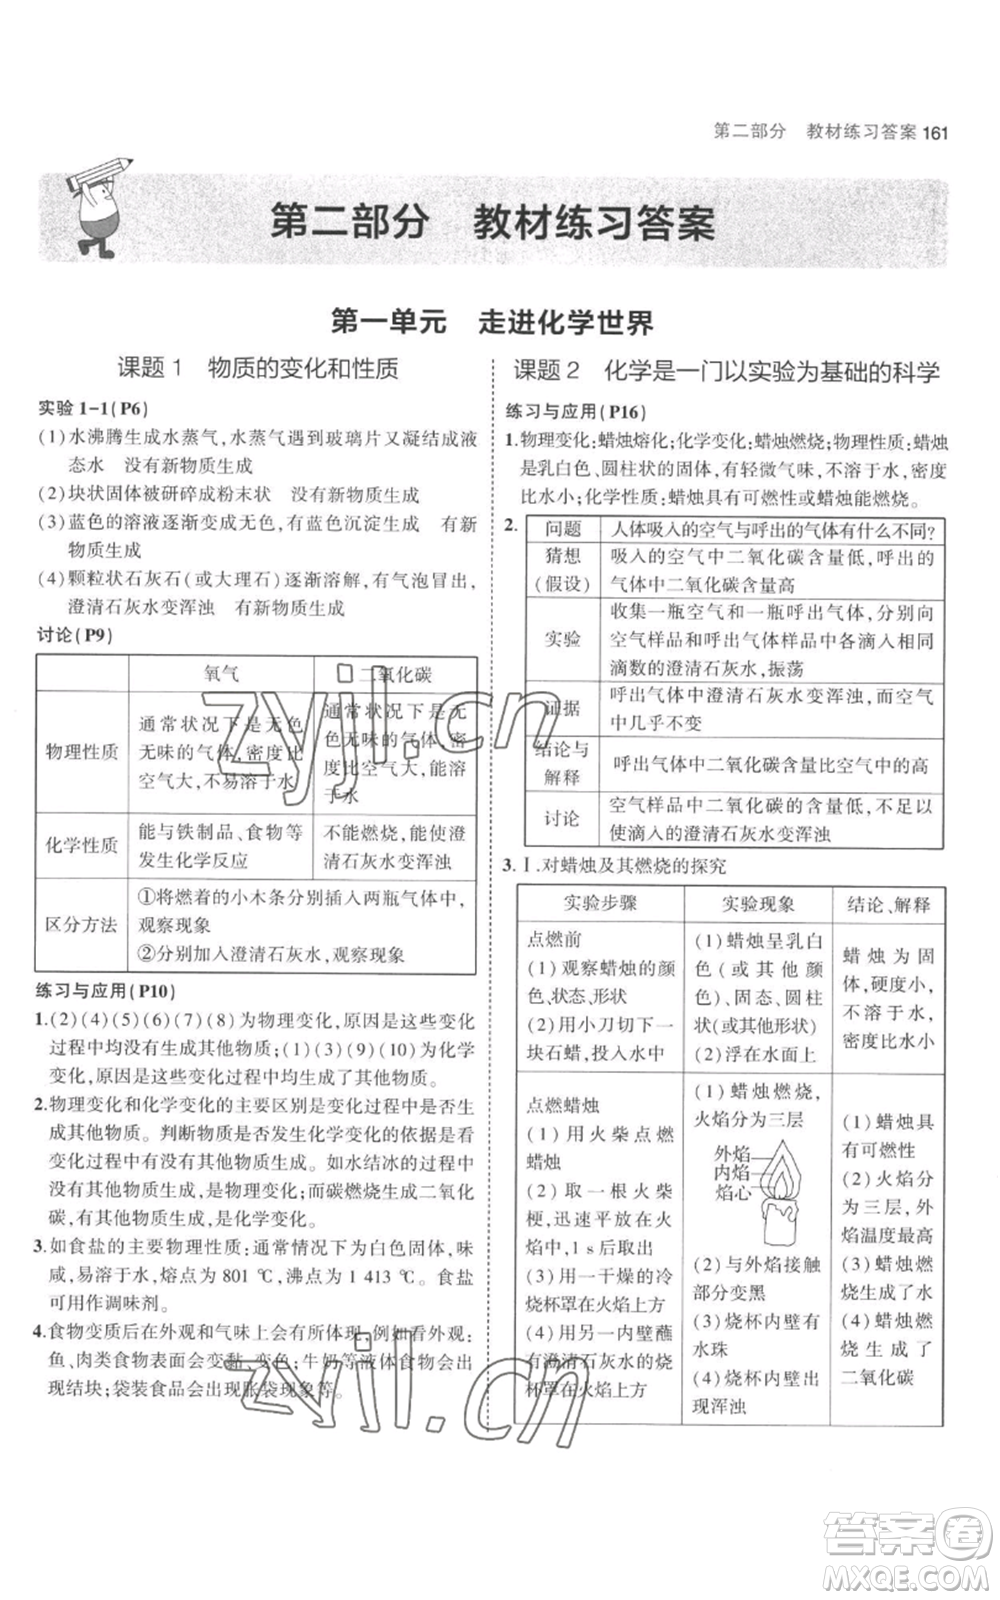 第二部分 教材练习答案 161
第二部分 教材练习答案
第一单元 走进化学世界
课题1 物质的变化和性质
实验 1-1(P6)
(1)水沸腾生成水蒸气,水蒸气遇到玻璃片又凝结成液
态水 没有新物质生成
(2)块状固体被研碎成粉末状 没有新物质生成
(3)蓝色的溶液逐渐变成无色,有蓝色沉淀生成 有新
物质生成
(4)颗粒状石灰石(或大理石)逐渐溶解,有气泡冒出,
澄清石灰水变浑浊 有新物质生成
讨论(P9)
氧气 二氧化碳
物理性质
通常状况下是无色
无味的气体,密度比
空气大,不易溶于水
通常状况下是无
色无味的气体,密
度比空气大,能溶
于水
化学性质
能与铁制品、食物等
发生化学反应
不能燃烧,能使澄
清石灰水变浑浊
区分方法
①将燃着的小木条分别插入两瓶气体中,
观察现象
②分别加入澄清石灰水,观察现象
练习与应用(P10)
1.(2)(4)(5)(6)(7)(8)为物理变化,原因是这些变化
过程中均没有生成其他物质;(1)(3)(9)(10)为化学
变化,原因是这些变化过程中均生成了其他物质。
2.物理变化和化学变化的主要区别是变化过程中是否生
成其他物质。判断物质是否发生化学变化的依据是看
变化过程中有没有生成其他物质。如水结冰的过程中
没有生成其他物质,是物理变化;而碳燃烧生成二氧化
碳,有其他物质生成,是化学变化。
3.如食盐的主要物理性质:通常情况下为白色固体,味
咸,易溶于水,熔点为 801 ℃,沸点为 1 413 ℃。食盐
可用作调味剂。
4.食物变质后在外观和气味上会有所体现,例如看外观:
鱼、肉类食物表面会变黏、变色;牛奶等液体食物会出
现结块;袋装食品会出现胀袋现象等。
课题2 化学是一门以实验为基础的科学
练习与应用(P16)
1.物理变化:蜡烛熔化;化学变化:蜡烛燃烧;物理性质:蜡烛
是乳白色、圆柱状的固体,有轻微气味,不溶于水,密度
比水小;化学性质:蜡烛具有可燃性或蜡烛能燃烧。
2.
问题 人体吸入的空气与呼出的气体有什么不同?
猜想
(假设)
吸入的空气中二氧化碳含量低,呼出的
气体中二氧化碳含量高
实验
收集一瓶空气和一瓶呼出气体,分别向
空气样品和呼出气体样品中各滴入相同
滴数的澄清石灰水,振荡
证据
呼出气体中澄清石灰水变浑浊,而空气
中几乎不变
结论与
解释
呼出气体中二氧化碳含量比空气中的高
讨论
空气样品中二氧化碳的含量低,不足以
使滴入的澄清石灰水变浑浊
3.Ⅰ.对蜡烛及其燃烧的探究
实验步骤 实验现象 结论、解释
点燃前
(1)观察蜡烛的颜
色、状态、形状
(2)用小刀切下一
块石蜡,投入水中
(1)蜡烛呈乳白
色(或其他颜
色)、固态、圆柱
状(或其他形状)
(2)浮在水面上
蜡烛为固
体,硬度小,
不溶于水,
密度比水小
点燃蜡烛
(1)用火柴点燃
蜡烛
(2)取一根火柴
梗,迅速平放在火
焰中,1 s后取出
(3)用一干燥的冷
烧杯罩在火焰上方
(4)用另一内壁蘸
有澄清石灰水的烧
杯罩在火焰上方
(1)蜡烛燃烧,
火焰分为三层
外焰
内焰
焰心
(2)与外焰接触
部分变黑
(3)烧杯内壁有
水珠
(4)烧杯内壁出
现浑浊
(1)蜡烛具
有可燃性
(2)火焰分
为三层,外
焰温度最高
(3)蜡烛燃
烧生成了水
(4)蜡烛燃
烧生成了
二氧化碳
zyjl.cn
zyjl.cn
答案卷
MXQE.COM